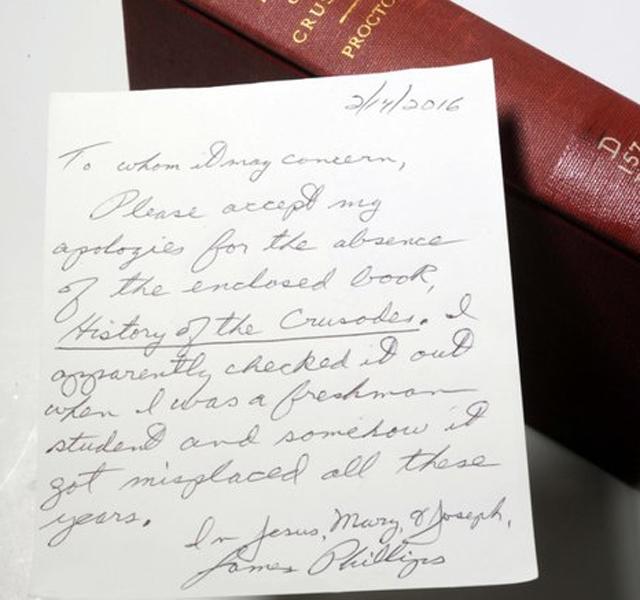 CRUS
PROCTO
D
157
2/14/2016
To whom it may concern,
Please accept my
apologies for the absence
of the enclosed book,
History of the Crusades. I
apparently checked it out
when I was a freshman
student and somehow it
got misplaced all these
years.
In Jesus, Mary, & Joseph,
James Phillips